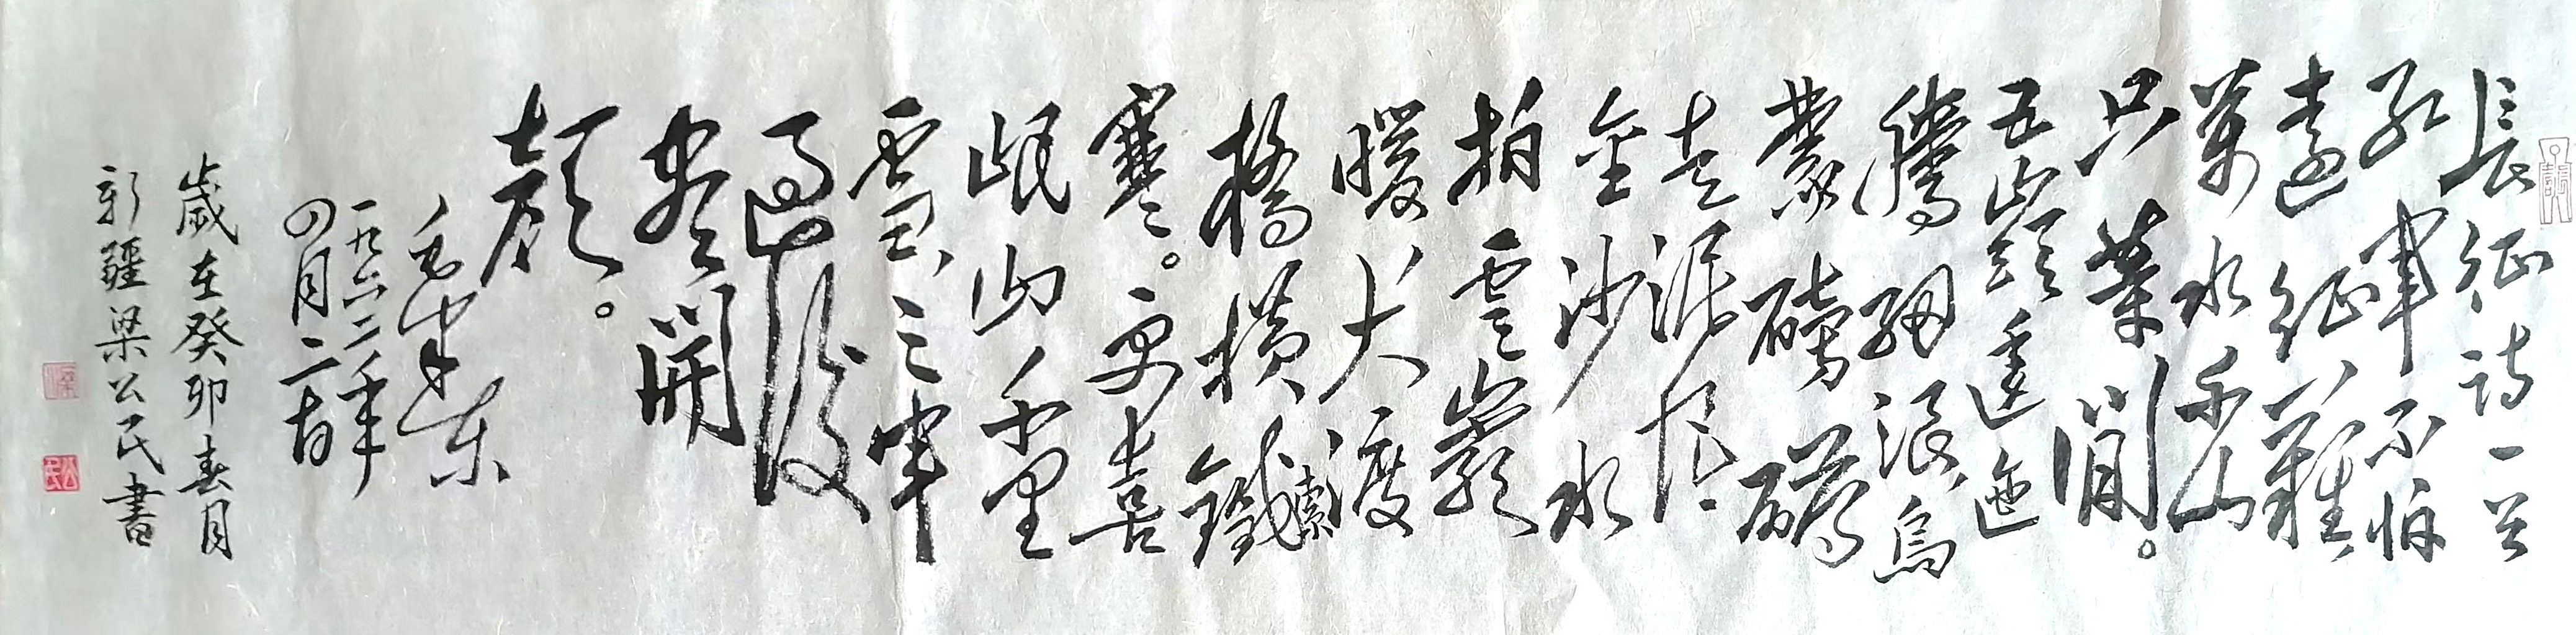 長征詩一首
紅軍不怕
遠征難
萬水千山
只等閒。
五嶺逶迤
騰細浪烏
蒙磅礴
走泥丸
金沙水
拍雲巖
暖大渡
橋橫鐵索
寒。更喜
岷山千里
雪三軍
過後
盡開
顏。
毛澤東
一九六二年
四月二十日
歲在癸卯春月
新疆梁公民書